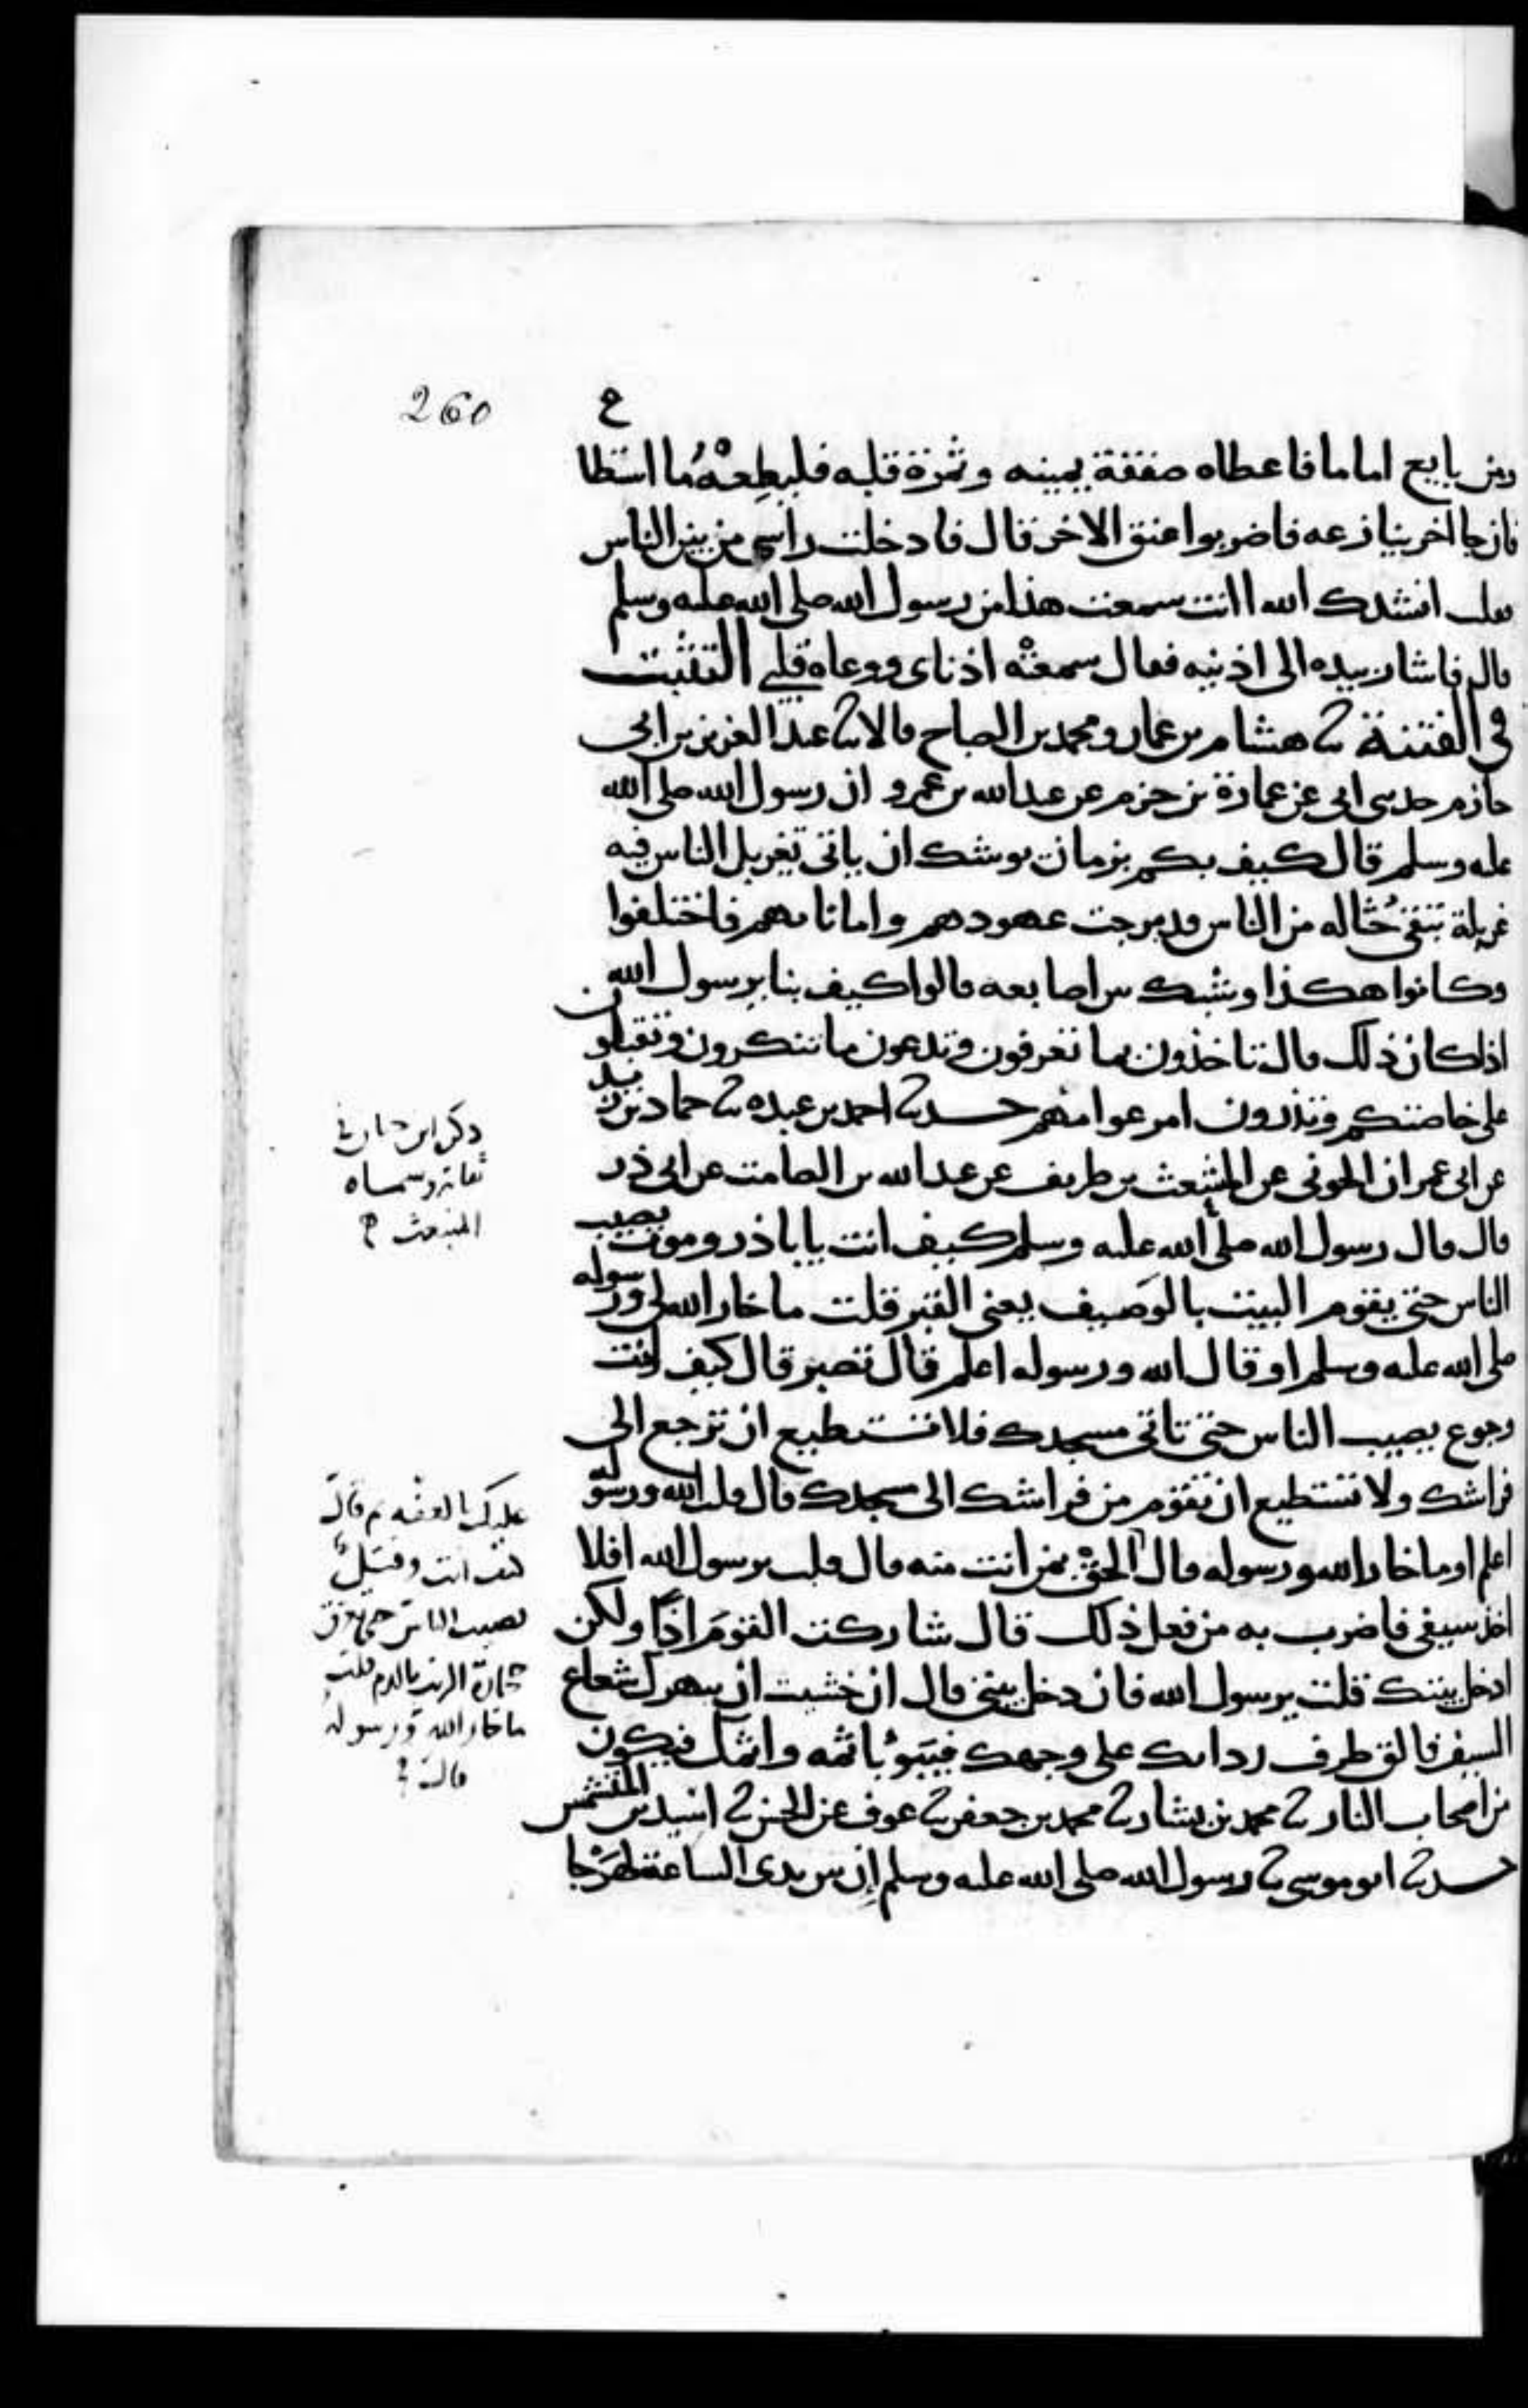 260
ع
ومن بايع اماما فاعطاه صفقة يمينه وثمرة قلبه فليطعه ما استطا
فان جا اخر ينازعه فاضربوا عنق الاخر قال فادخلت راسي من بين الناس
فقلت انشدك الله اانت سمعت هذا من رسول الله صلى الله عليه وسلم
قال فاشار بيده الى اذنيه فقال سمعته اذناى ووعاه قلبي التثبت
في الفتنة ثنا هشام بن عمار ومحمد بن الصباح قالا ثنا عبد العزيز بن ابي
حازم حدثني ابي عن عمارة بن حزم عن عبد الله بن عمرو ان رسول الله صلى الله
عليه وسلم قال كيف بكم بزمان يوشك ان ياتي تغربل الناس فيه
غربلة تبقى حثاله من الناس قد مرجت عهودهم واماناتهم فاختلفوا
وكانوا هكذا وشبك بين اصابعه قالوا كيف بنا يرسول الله
اذا كان ذلك قال تاخذون بما تعرفون وتدعون ما تنكرون وتقبلون
على خاصتكم وتذرون امر عوامهم حدثنا احمد بن عبده ثنا حماد بن زيد
عن ابي عمران الجوني عن المشعث بن طريف عن عبد الله بن الصامت عن ابي ذر
قال قال رسول الله صلى الله عليه وسلم كيف انت يا با ذر وموت يصيب
الناس حتى يقوم البيت بالوصيف يعني القبر قلت ما خار الله لي ورسوله
صلى الله عليه وسلم او قال الله ورسوله اعلم قال تصبر قال كيف انت
وجوع يصيب الناس حتى تاتي مسجدك فلا تستطيع ان ترجع الى
فراشك ولا تستطيع ان تقوم من فراشك الى مسجدك قال قلت الله ورسوله
اعلم او ما خار الله ورسوله قال الحق بمن انت منه قال قلت يرسول الله افلا
اخذ سيفي فاضرب به من فعل ذلك قال شاركت القوم اذا ولكن
ادخل بيتك قلت يرسول الله فان دخل بيتي قال ان خشيت ان يبهرك شعاع
السيف فالق طرف ردائك على وجهك فيبوء باثمه واثمك فيكون
من اصحاب النار ثنا محمد بن بشار ثنا محمد بن جعفر ثنا عوف عن الحسن ثنا اسيد بن المتشمس
حدثنا ابو موسى ثنا رسول الله صلى الله عليه وسلم ان بين يدى الساعة لهرجا
ذكر ابن حبان في
ثقاته وسماه
المنبعث
عليك بالعفه ثم قال
كيف انت وقتل
يصيب الناس حتى تغرق
حجارة الزيت بالدم قلت
ما خار الله ورسوله
قال